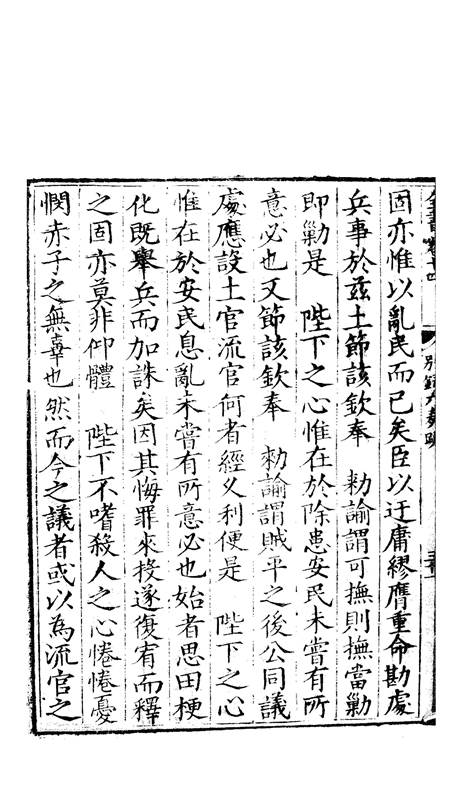 固亦惟以亂民而已矣臣以迂庸繆膺重命勘處
兵事於茲土節該欽奉　勑諭謂可撫則撫當勦
即勦是　陛下之心惟在於除患安民未嘗有所
意必也又節該欽奉　勑諭謂賊平之後公同議
處應設土官流官何者經义利便是　陛下之心
惟在於安民息亂未嘗有所意必也始者思田梗
化既舉兵而加誅矣因其悔罪來投遂復宥而釋
之固亦莫非仰體　陛下不嗜殺人之心惓惓憂
憫赤子之無辜也然而今之議者或以為流官之